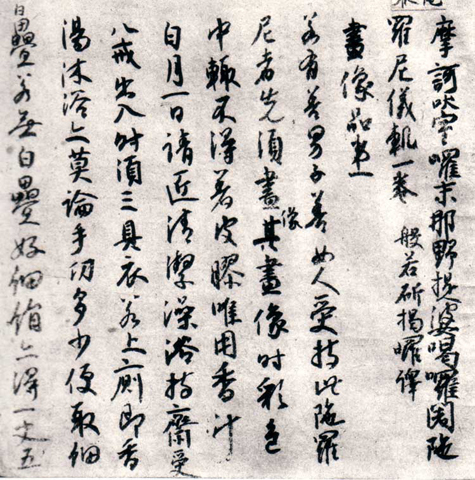 摩訶吠室囉末那野提婆喝囉闍陁
羅尼儀軌一卷 般若斫揭囉譯
畫像品第一
若有善男子善女人受持此陁羅
尼者先須畫像其畫像時彩色
中輙不得著皮膠唯用香汁
白月一日請近清潔澡浴持齋受
八戒出入時須三具衣若上廁即香
湯沐浴上莫論手仞多少便取細
白疊若無白疊好細絹亦得一丈五